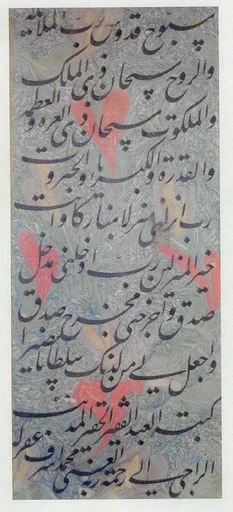 سبوح قدوس رب الملائکة
والروح سبحان ذی الملک
والملکوت سبحان ذی العزة والعظمة
والقدرة والکبریا والجبروت
رب انزلنی منزلا مبارکا وانت
خیر المنزلین رب ادخلنی مدخل
صدق واخرجنی مخرج صدق
واجعل لی من لدنک سلطانا نصیرا
کتبه العبد الفقیر الحقیر المذنب
الراجی الی رحمة ربه الغنی محمد اشرف غفرله